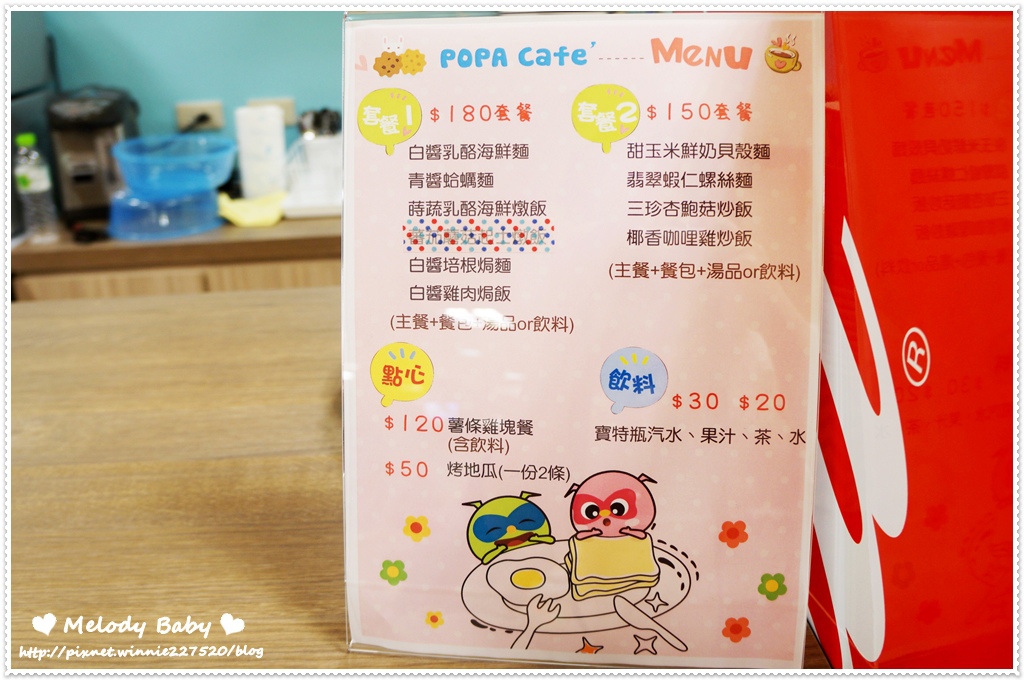 POPA Cafe' ------ Menu
套餐1 $180套餐
白醬乳酪海鮮麵
青醬蛤蠣麵
蒔蔬乳酪海鮮燉飯
白醬培根焗麵
白醬雞肉焗飯
(主餐+餐包+湯品or飲料)
套餐2 $150套餐
甜玉米鮮奶貝殼麵
翡翠蝦仁螺絲麵
三珍杏鮑菇炒飯
椰香咖哩雞炒飯
(主餐+餐包+湯品or飲料)
點心
$120 薯條雞塊餐
(含飲料)
$50 烤地瓜(一份2條)
飲料
$30 $20
寶特瓶汽水、果汁、茶、水
®
Melody Baby
http://pixnet.winnie227520/blog